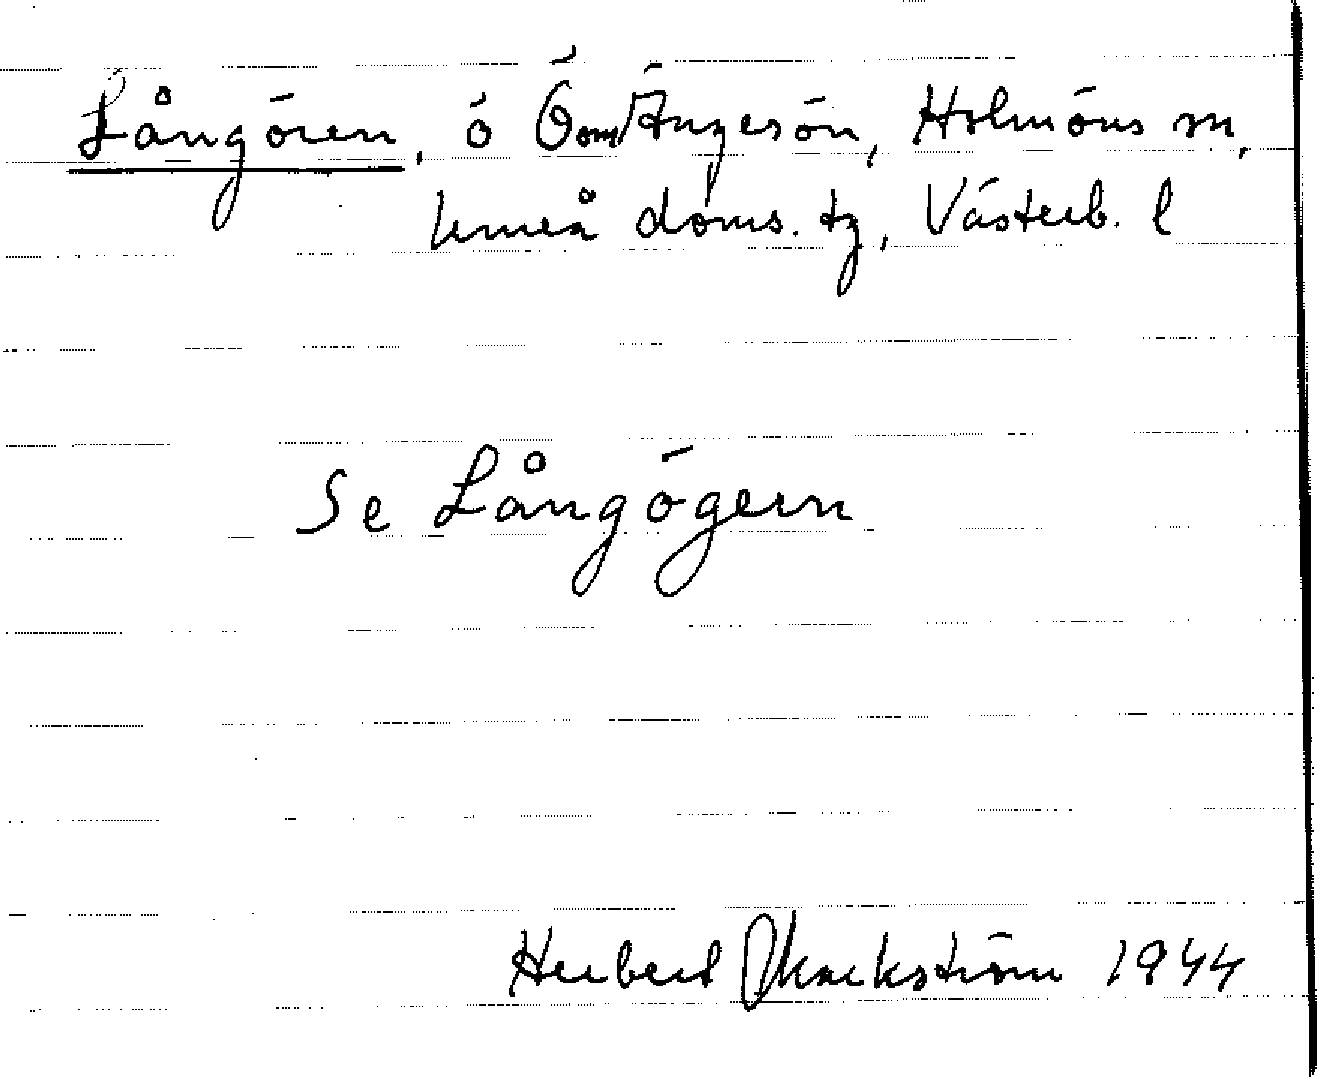 Långören, ö Ö om Ängesön, Holmöns sn,
Umeå doms. tg, Västerb. l
Se Långögern
Herbert 1944